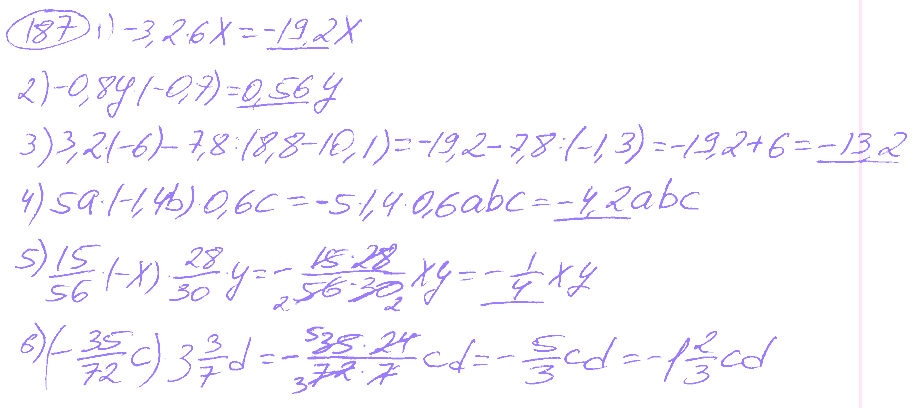 187 1) -3,2·6x = -19,2x
2) -0,8y(-0,7) = 0,56y
3) 3,2(-6) - 7,8:(8,8-10,1) = -19,2 - 7,8:(-1,3) = -19,2 + 6 = -13,2
4) 5a·(-1,4b)·0,6c = -5·1,4·0,6abc = -4,2abc
5) 15/56·(-x)·28/30·y = - 15·28/56·30 2 2 xy = - 1/4 xy
6) (- 35/72 c) 3 3/7 d = - 5 35·24/3 72·7 cd = - 5/3 cd = -1 2/3 cd